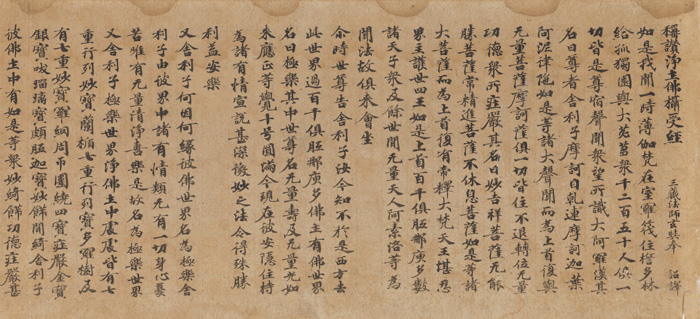 稱讚淨土佛攝受經
三藏法師玄奘奉 詔譯
如是我聞一時薄伽梵在室羅筏住誓多林
給孤獨園與大苾芻眾千二百五十人俱一
切皆是尊宿聲聞眾望所識大阿羅漢其
名曰尊者舍利子摩訶目乾連摩訶迦葉
阿泥律陁如是等諸大聲聞而為上首復與
無量菩薩摩訶薩俱一切皆住不退轉位無量
功德眾所莊嚴其名曰妙吉祥菩薩無能
勝菩薩常精進菩薩不休息菩薩如是等諸
大菩薩而為上首復有帝釋大梵天王堪忍
界主護世四王如是上首百千俱胝那庾多數
諸天子眾及餘世間無量天人阿素洛等為
聞法故俱來會坐
尒時世尊告舍利子汝今知不於是西方去
此世界過百千俱胝那庾多佛土有佛世界
名曰極樂其中世尊名無量壽及無量光如
來應正等覺十号圓滿今現在彼安隱住持
為諸有情宣說甚深微妙之法令得殊勝
利益安樂
又舍利子何因何緣彼佛世界名為極樂舍
利子由彼界中諸有情類無有一切身心憂
苦唯有無量清淨喜樂是故名為極樂世界
又舍利子極樂世界淨佛土中處處皆有七
重行列妙寶欄楯七重行列寶多羅樹及
有七重妙寶羅網周帀圍繞四寶莊嚴金寶
銀寶吠瑠璃寶頗胝迦寶妙飾間綺舍利子
彼佛土中有如是等眾妙綺飾功德莊嚴甚